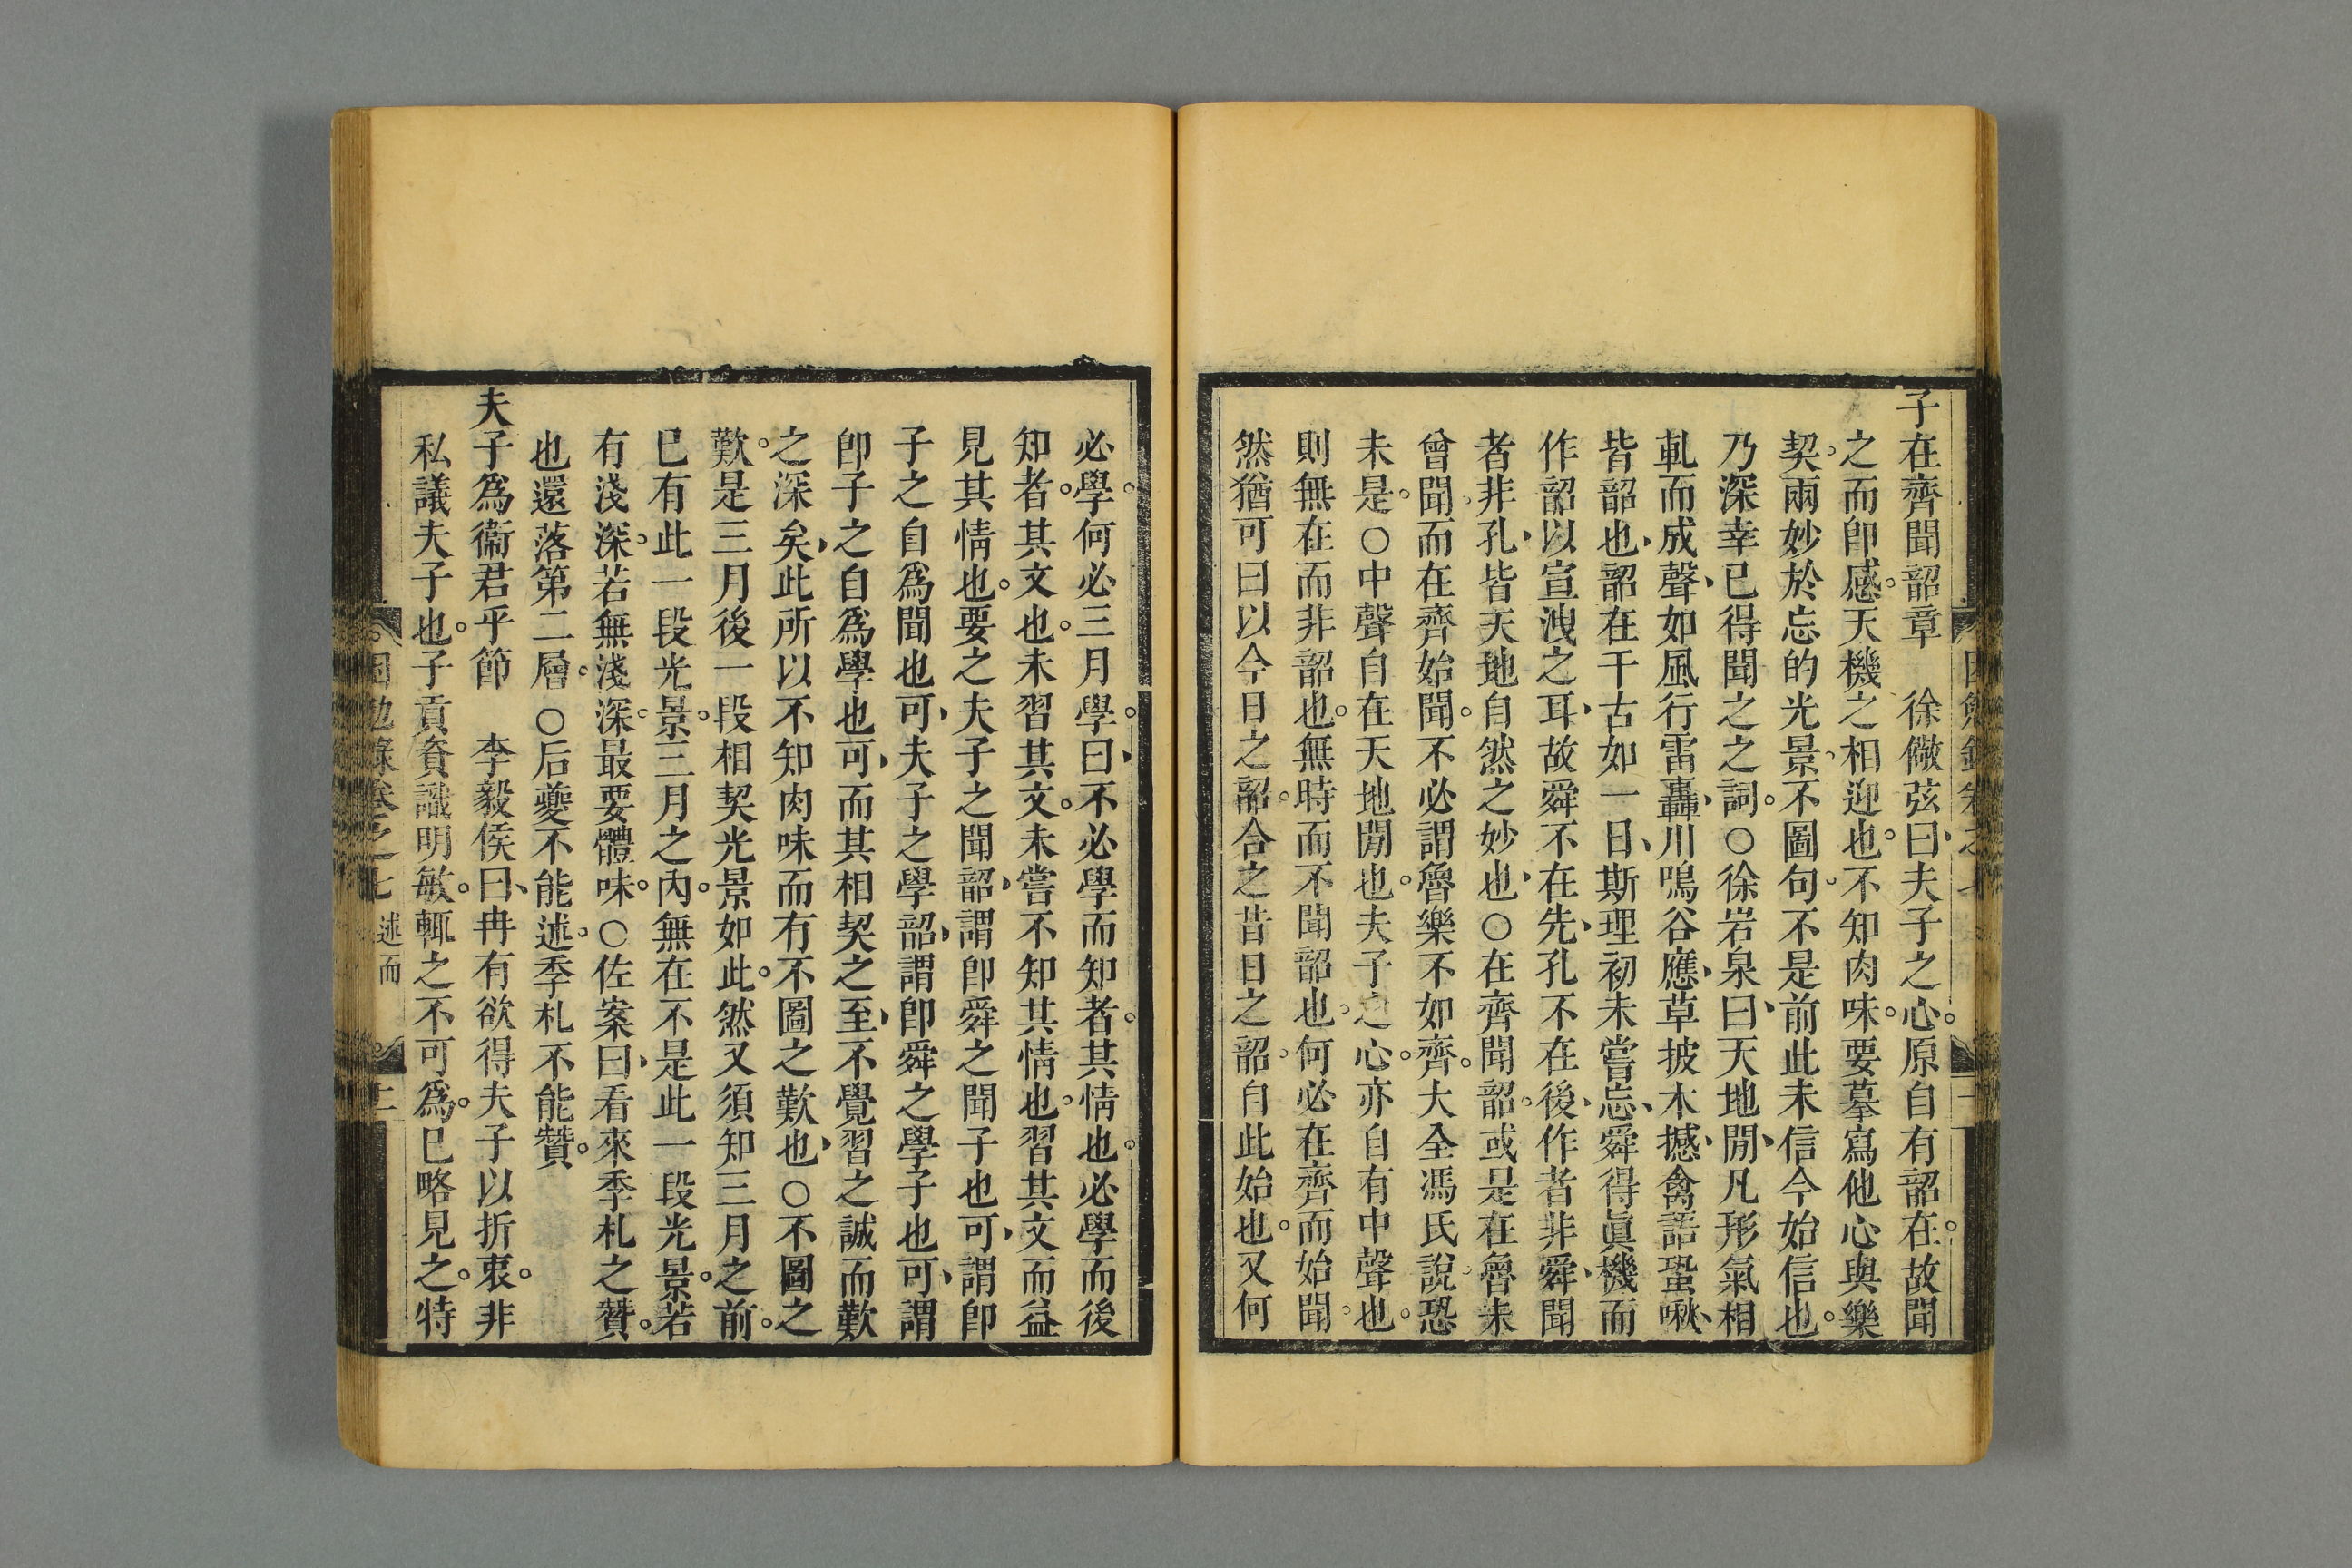 子在齊聞韶章　徐儆弦曰夫子之心。原自有韶在。故聞
之而卽感。天機之相迎也。不知肉味。要摹寫他心與樂
契。兩妙於忘的光景。不圖句。不是前此未信今始信也。
乃深幸已得聞之之詞。○徐岩泉曰、天地閒、凡形氣相
軋而成聲、如風行雷轟、川鳴谷應、草披木撼、禽語蛩啾、
皆韶也、韶在千古如一日、斯理初未嘗忘、舜得眞機而
作韶以宣洩之耳、故舜不在先、孔不在後、作者非舜、聞
者非孔、皆天地自然之妙也、○在齊聞韶。或是在魯未
曾聞。而在齊始聞。不必謂魯樂不如齊。大全馮氏說。恐
未是。○中聲自在天地閒也。夫子之心。亦自有中聲也。
則無在而非韶也。無時而不聞韶也。何必在齊而始聞。
然猶可曰以今日之韶。合之昔日之韶。自此始也。又何
必學。何必三月學。曰、不必學而知者。其情也。必學而後
知者。其文也。未習其文。未嘗不知其情也。習其文而益
見其情也。要之夫子之聞韶、謂卽舜之聞子也可、謂卽
子之自爲聞也可、夫子之學韶、謂卽舜之學子也可、謂
卽子之自爲學也可、而其相契之至、不覺習之誠而歎
之深矣、此所以不知肉味而有不圖之歎也、○不圖之
歎。是三月後一段相契光景如此。然又須知三月之前。
已有此一段光景。三月之內。無在不是此一段光景。若
有淺深。若無淺深。最要體味。○佐案曰、看來季札之贊。
也還落第二層。○后夔不能述。季札不能贊。
夫子爲衞君乎節　李毅侯曰、冉有欲得夫子以折衷。非
私議夫子也。子貢資識明敏。輒之不可爲。已略見之。特
困勉錄卷之七　述而　二